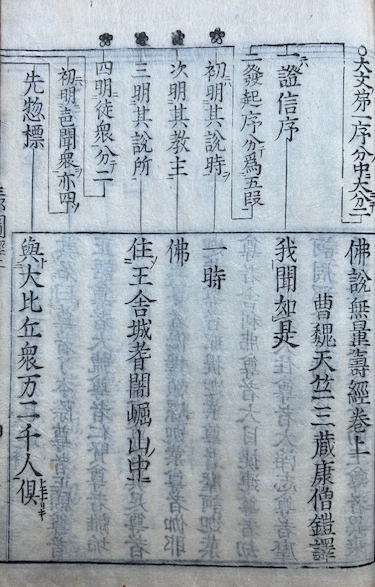 ○大文第一序分中大分二
一證信序
二發起序分為五段
初明其說時
次明其教主
三明其說所
四明徒衆分二
初明声聞衆亦四
先惣標
佛說無量壽經卷上
曹魏天竺三藏康僧鎧譯
我聞如是
一時
佛
住王舍城耆闍崛山中
與大比丘衆万二千人俱